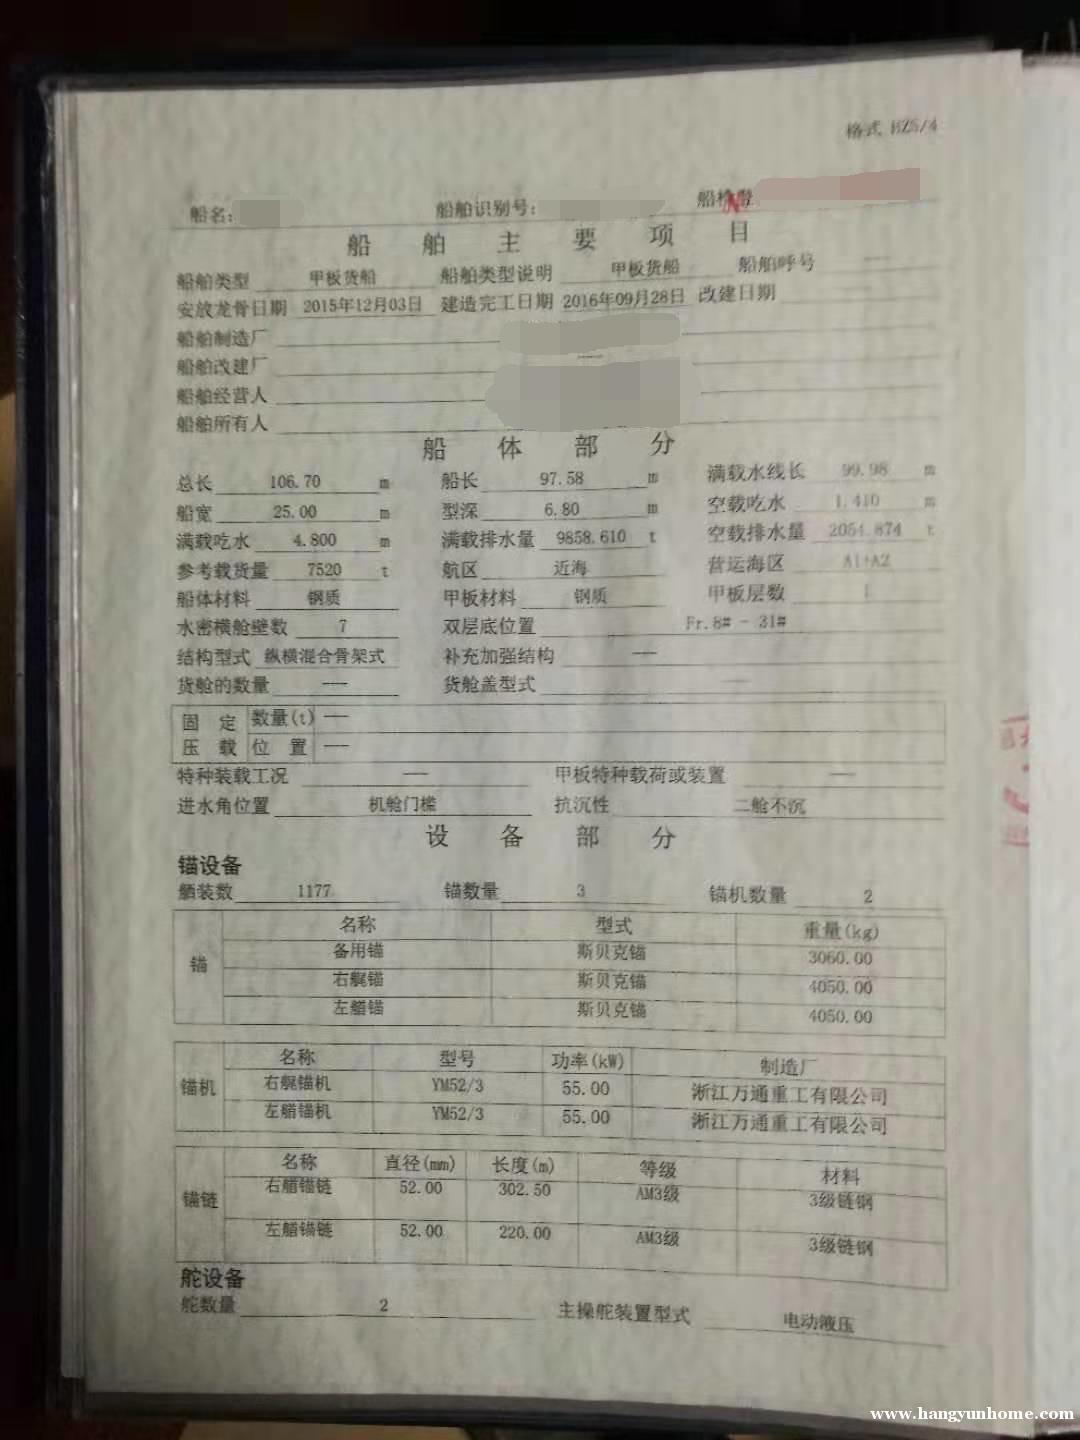 格式 HZS/4
船名: 船舶识别号: 船检登 №
船 舶 主 要 项 目
船舶类型 甲板货船 船舶类型说明 甲板货船 船舶呼号 ——
安放龙骨日期 2015年12月03日 建造完工日期 2016年09月28日 改建日期
船舶制造厂
船舶改建厂 ——
船舶经营人
船舶所有人
船 体 部 分
总长 106.70 m 船长 97.58 m 满载水线长 99.98 m
船宽 25.00 m 型深 6.80 m 空载吃水 1.410 m
满载吃水 4.800 m 满载排水量 9858.610 t 空载排水量 2054.874 t
参考载货量 7520 t 航区 近海 营运海区 A1+A2
船体材料 钢质 甲板材料 钢质 甲板层数 1
水密横舱壁数 7 双层底位置 Fr.8# - 31#
结构型式 纵横混合骨架式 补充加强结构 ——
货舱的数量 —— 货舱盖型式 ——
固 定 数量(t) ——
压 载 位 置 ——
特种装载工况 —— 甲板特种载荷或装置 ——
进水角位置 机舱门槛 抗沉性 二舱不沉
设 备 部 分
锚设备
舾装数 1177 锚数量 3 锚机数量 2
锚 名称 型式 重量(kg)
备用锚 斯贝克锚 3060.00
右艉锚 斯贝克锚 4050.00
左艏锚 斯贝克锚 4050.00
锚机 名称 型号 功率(kW) 制造厂
右艉锚机 YM52/3 55.00 浙江万通重工有限公司
左艏锚机 YM52/3 55.00 浙江万通重工有限公司
锚链 名称 直径(mm) 长度(m) 等级 材料
右艏锚链 52.00 302.50 AM3级 3级链钢
左艏锚链 52.00 220.00 AM3级 3级链钢
舵设备
舵数量 2 主操舵装置型式 电动液压
www.hangyunhome.com